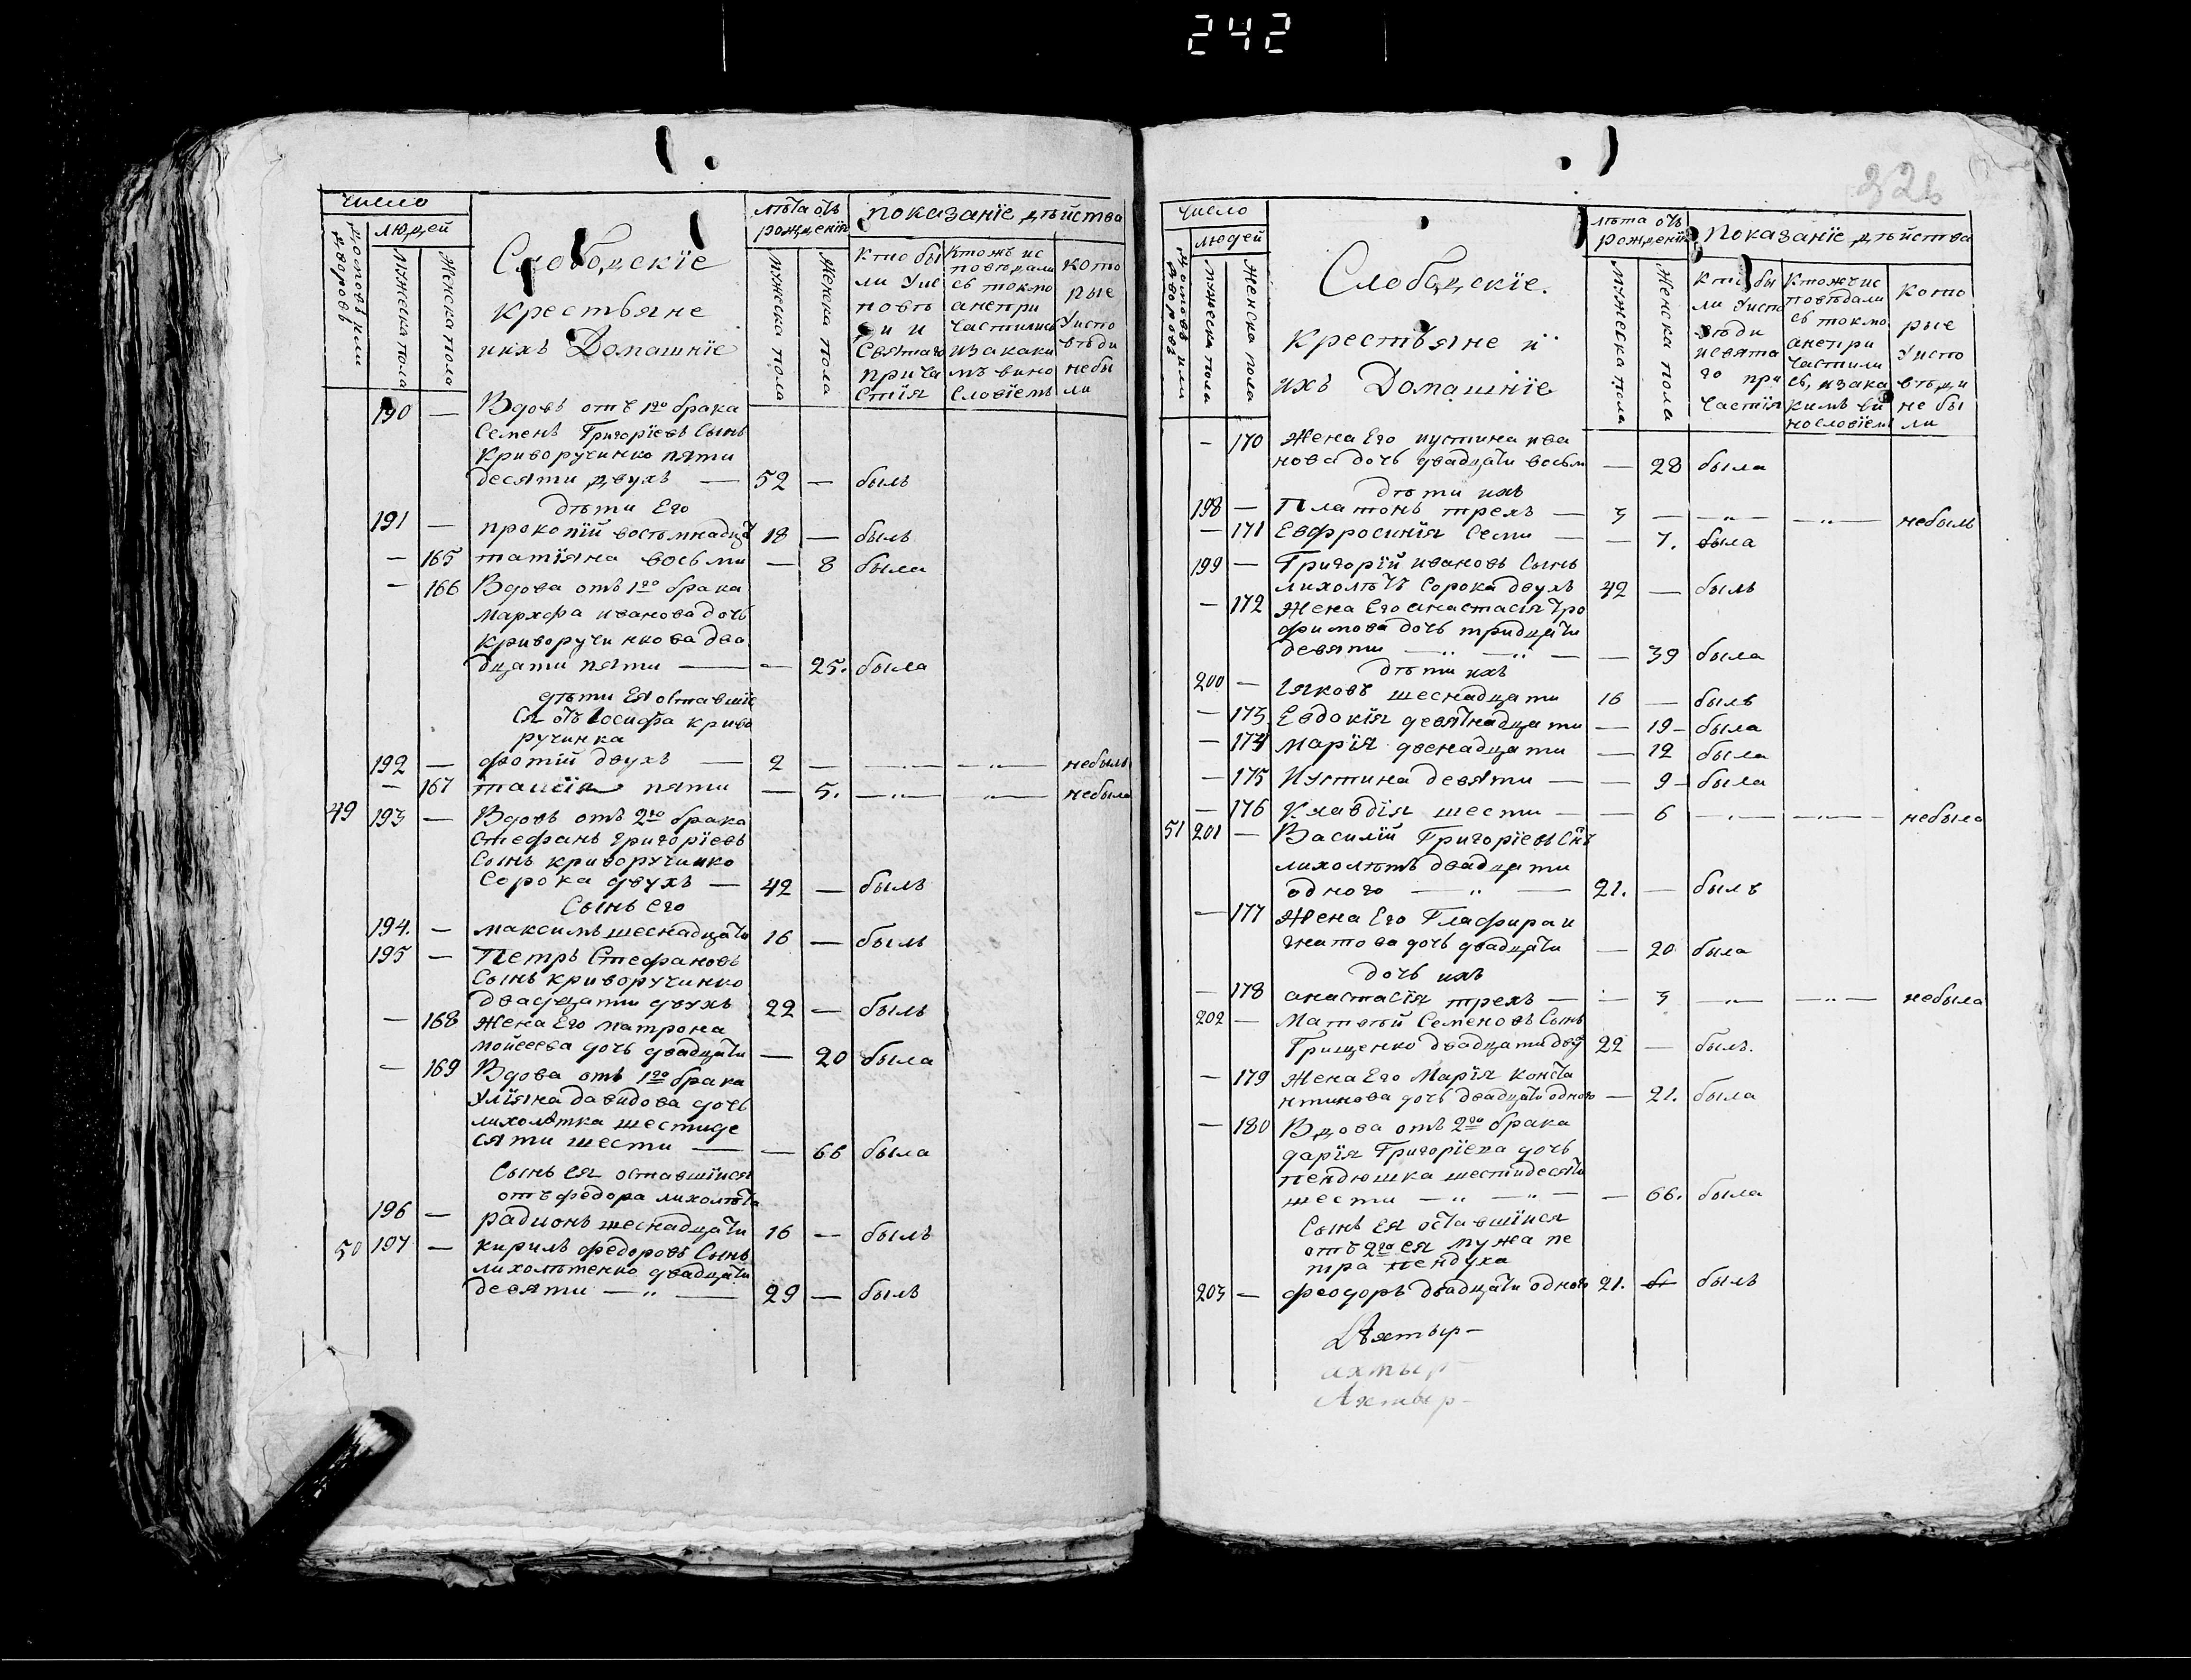 242
число
людей
домовъ или дворовъ
мужеска пола
женска пола
Слободскїе
крестьяне
ихъ Домашнїе
лѣта отъ рожденїя
мужеска пола
женска пола
показанїе дѣйства
Кто бы
ли у ис
повѣ
ди и
Святаго
прича
стїя
Ктожъ ис
повѣдали
сь токмо
анепри
частились
изакаки
мъ вино
словїемъ
кото
рые
уиспо
вѣди
небы
ли
190 — Вдовъ отъ 1го брака
Семенъ Григорїевъ Сынъ
Криворучинко пяти
десяти двухъ — 52 — былъ
дѣти Его
191 — прокопїй восъмнадца 18 — былъ
— 165 татїяна восьми — 8 была
— 166 Вдова отъ 1го брака
Мархфа иванова дочь
криворучинкова два
дцати пяти — — 25. была
дѣти Ея оставшїе
ся отъ Іосифа криво
ручинка
192 — фотїй двухъ — 2 — —„— —„— небылъ
— 167 таисїя пяти — 5. —„— —„— небыла
49 193 — Вдовъ отъ 2го брака
Стефанъ григорїевъ
Сынъ криворучинко
Сорока двухъ — 42 — былъ
Сынъ его
194. — максимъ шеснадцати 16 — былъ
195 — Петръ Стефановъ
Сынъ криворучинко
двадцати двухъ 22 — былъ
— 168 жена Его матрона
мойсеева дочь двадцати — 20 была
— 169 Вдова отъ 1го брака
Улїяна давидова дочь
лихолѣтка шестиде
сяти шести — — 66 была
Сынъ ея оставшїйся
отъ федора лихолѣта
196 — радионъ шеснадцати 16 — былъ
50 197 — кирилъ федоровъ Сынъ
лихолѣтенко двадцати
девяти —„— 29 — былъ
326
число
людей
домовъ или дворовъ
мужеска пола
женска пола
Слободскїе.
крестьяне и
ихъ Домашнїе
лѣта отъ
рожденїя
мужеска пола
женска пола
Показанїе дѣйства
Кто бы
ли уиспо
вѣди
исвята
го при
частїя
Ктожъ ис
повѣдали
сь токмо
анепри
частили
сь, изака
кимъ ви
нословїемъ
кото
рые
уиспо
вѣди
не бы
ли
— 170 жена Его иустина ива
нова дочь двадцати восьм — 28 была
дѣти ихъ
198 — Платонъ трехъ — 3 — —„— —„— небылъ
— 171 Евфросинїя Семи — — 7. была
199 — Григорїй ивановъ Сынъ
лихолѣтъ Сорока двухъ 42 — былъ
— 172 Жена Его анастасїя тро
фимова дочь тридцати
девяти —„— —„— — 39 была
дѣти ихъ
200 — Іяковъ шеснадцати 16 — былъ
— 173 Евдокїя девятнадцати — 19 — была
— 174 марїя двенадцати — 12 была
— 175 Иустина девяти — — 9 — была
— 176 Клавдїя шести — — 6 —„— —„— небыла
51 201 — Василїй Григорїевъ Снъ
лихолѣтъ двадцати
одного —„— 21. — былъ
— 177 Жена Его Глафира и
гнатова дочь двадцати — 20 была
дочь ихъ
— 178 анастасїя трехъ — — 3 —„— —„— небыла
202 — Матвѣй Семеновъ Сынъ
Грищенко двадцати двух 22 — былъ.
— 179 жена Его Марїя конста
нтинова дочь двадцати одного — 21. была
— 180 Вдова отъ 2го брака
дарїя Григорїева дочь
пендюшка шестидесяти
шести —„— —„— — 66. была
Сынъ ея оставшїйся
отъ 2го ея мужа пе
тра пендуха
203 — феодоръ двадцати одного 21. былъ
Ахтыр—
ахтыр—
Ахтыр—